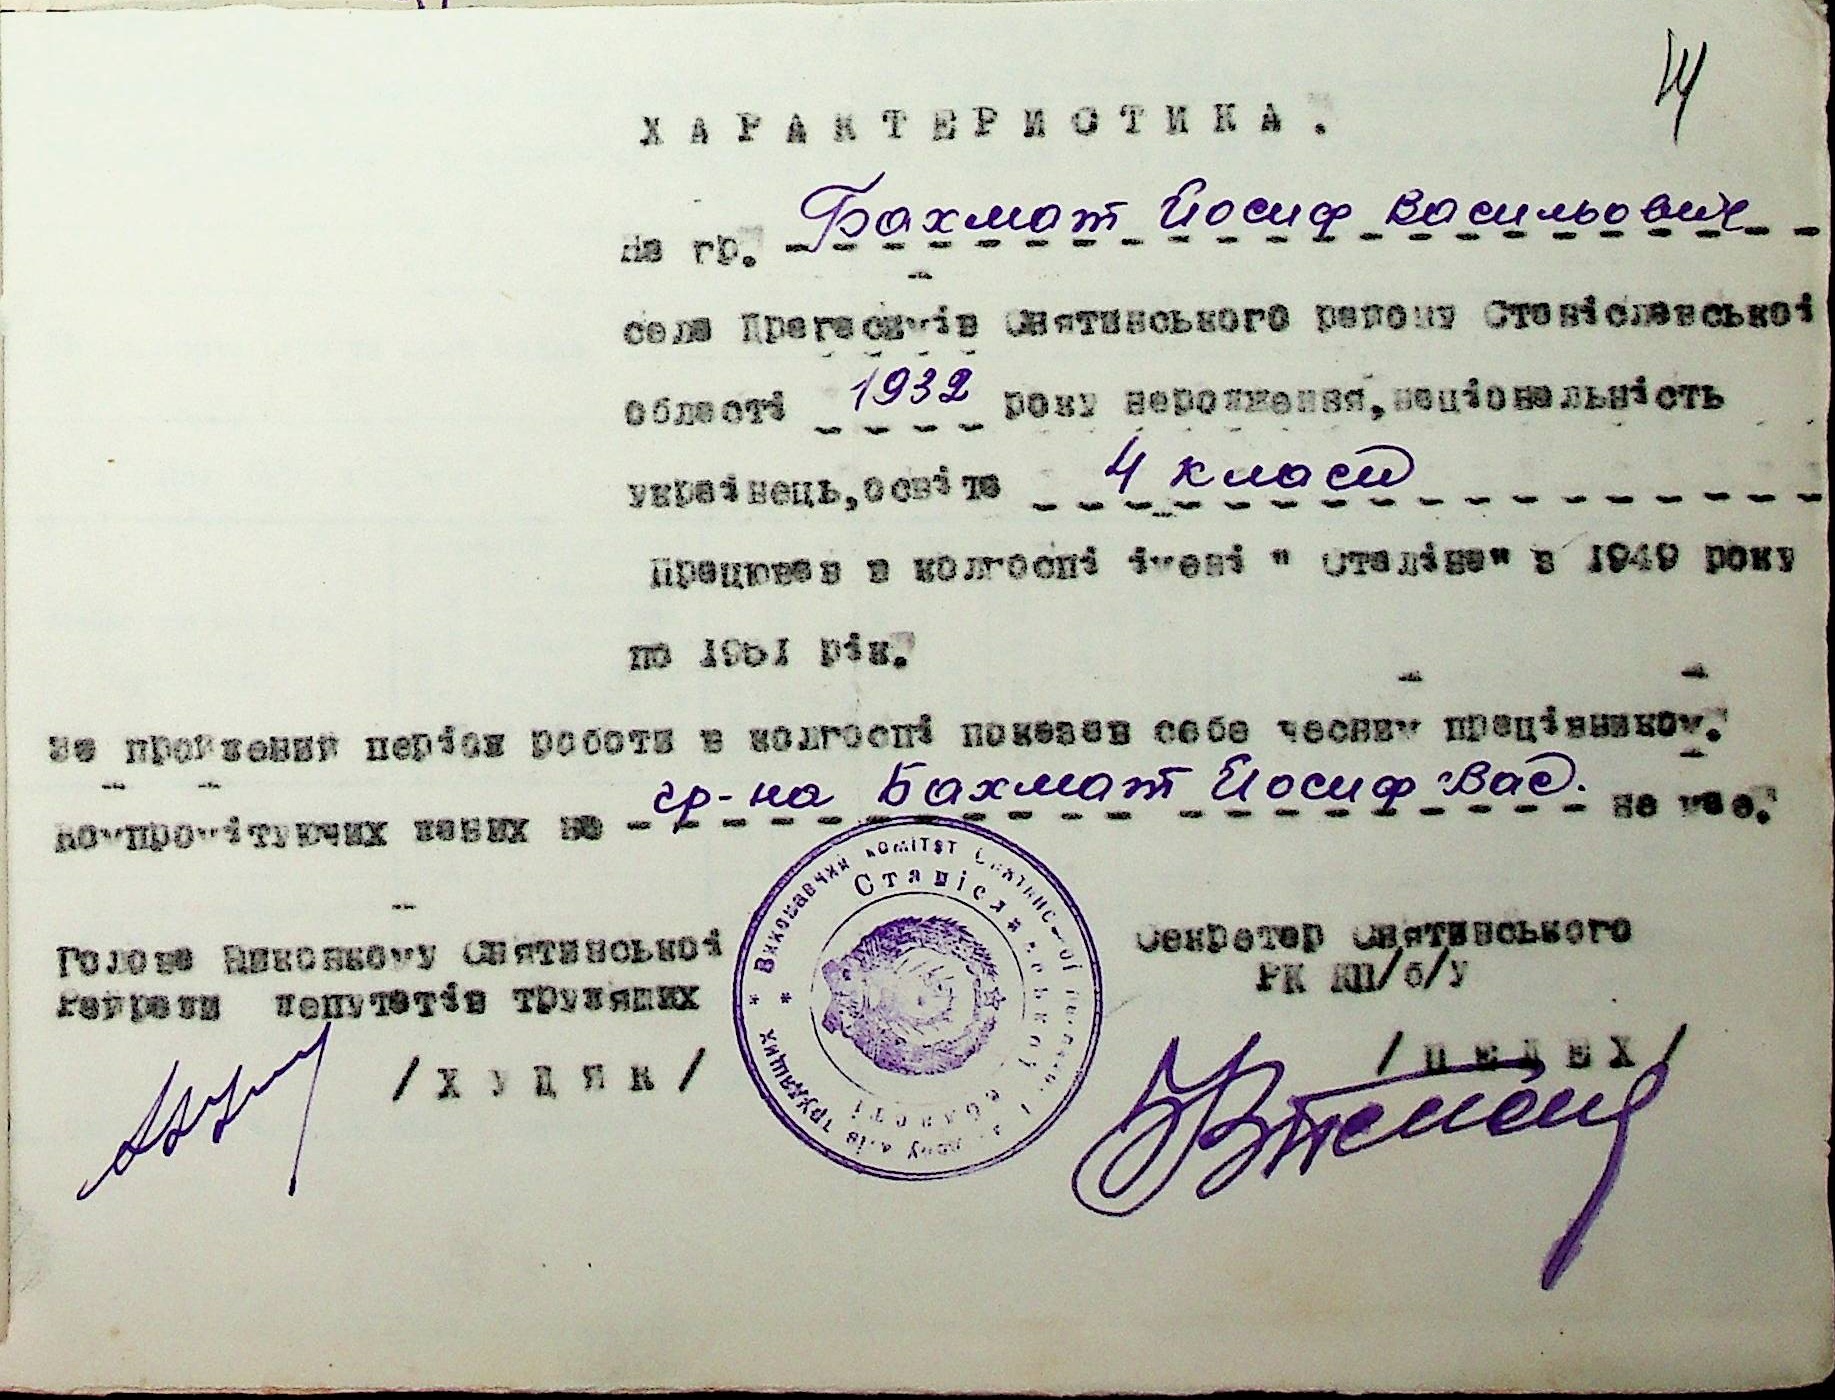 ХАРАКТЕРИСТИКА.
на гр. Бахмат Йосиф Васильович
села Драгасимів Снятинського району Станіславської
області 1932 року народження, національність
українець, освіта 4 класи
Працював в колгоспі імені " Сталіна" в 1949 року
по 1951 рік.
За пройдений період роботи в колгоспі показав себе чесним працівником.
Компромітуючих даних на гр-на Бахмат Йосиф Вас. не має.
Голова Виконкому Снятинської
Райради депутатів трудящих
/ХУДЯК/
Секретар Снятинського
РК КП/б/У
/ПЕЛЕХ/
* Виконавчий комітет Снятинс трудящих *
Станіславської області